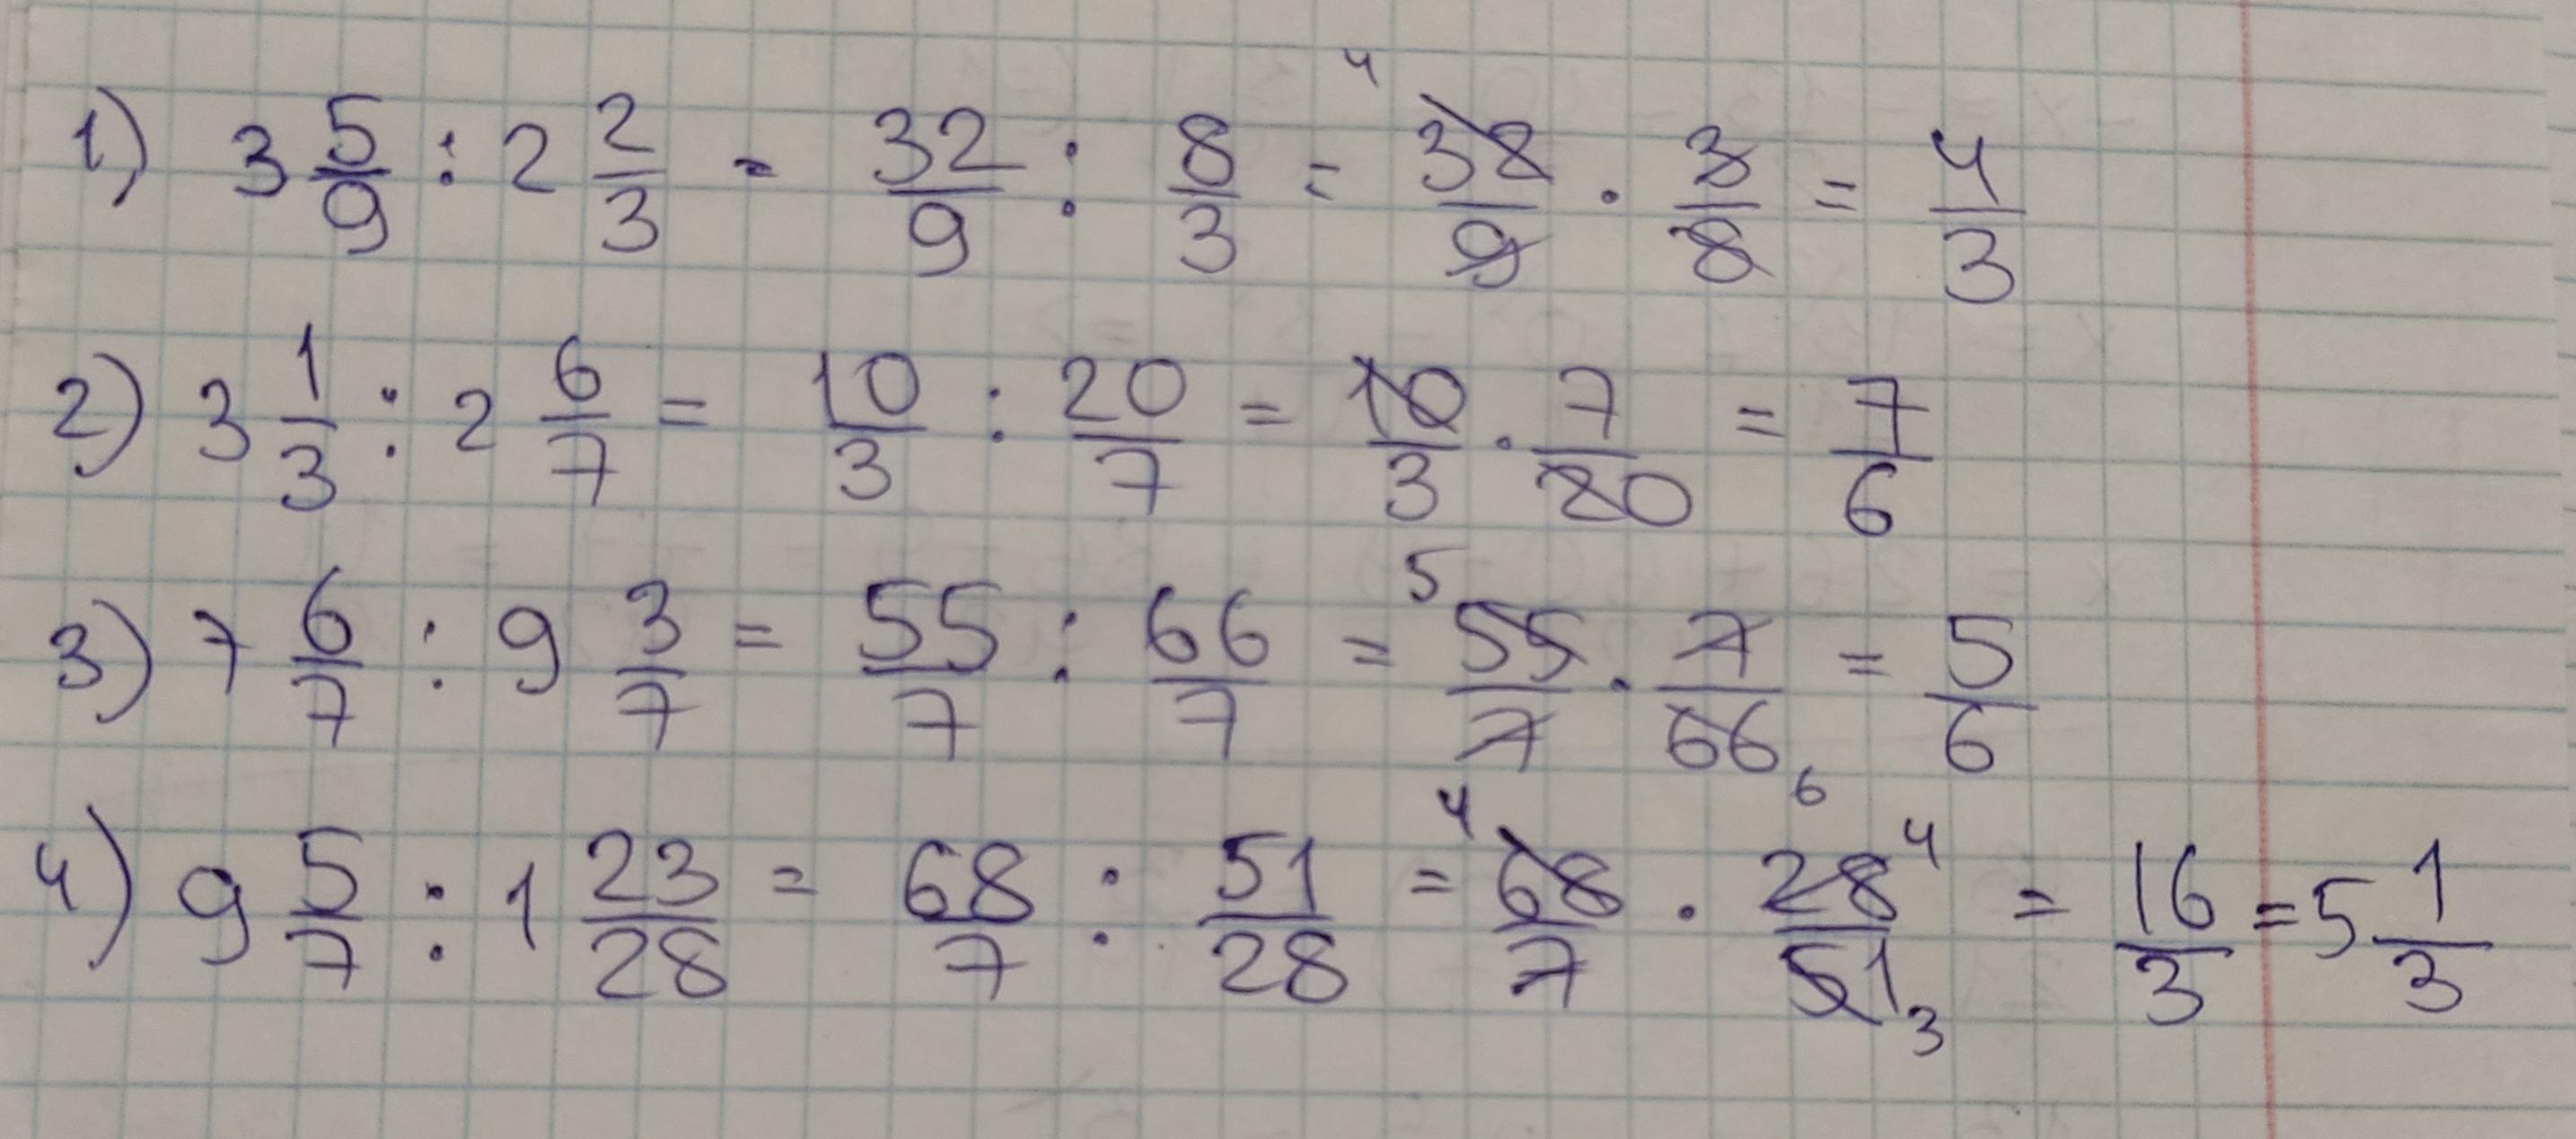 1) 3 5/9 : 2 2/3 = 32/9 : 8/3 = 4 32/9 · 3/8 = 4/3
2) 3 1/3 : 2 6/7 = 10/3 : 20/7 = 10/3 · 7/20 = 7/6
3) 7 6/7 : 9 3/7 = 55/7 : 66/7 = 5 55/7 · 7/66 6 = 5/6
4) 9 5/7 : 1 23/28 = 68/7 : 51/28 = 4 68/7 · 28 4/51 3 = 16/3 = 5 1/3